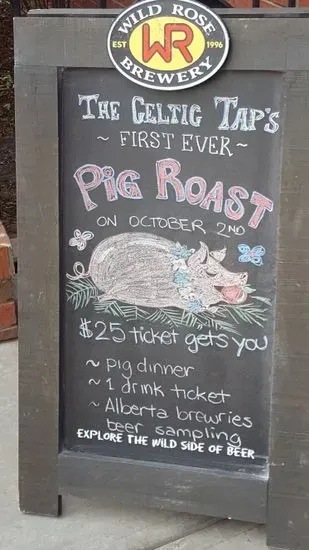 WILD ROSE
EST WR 1996
BREWERY
THE CELTIC TAP'S
~ FIRST EVER ~
PIG ROAST
ON OCTOBER 2ND
$25 ticket gets you
~ pig dinner
~ 1 drink ticket
~ Alberta brewries
beer sampling
EXPLORE THE WILD SIDE OF BEER